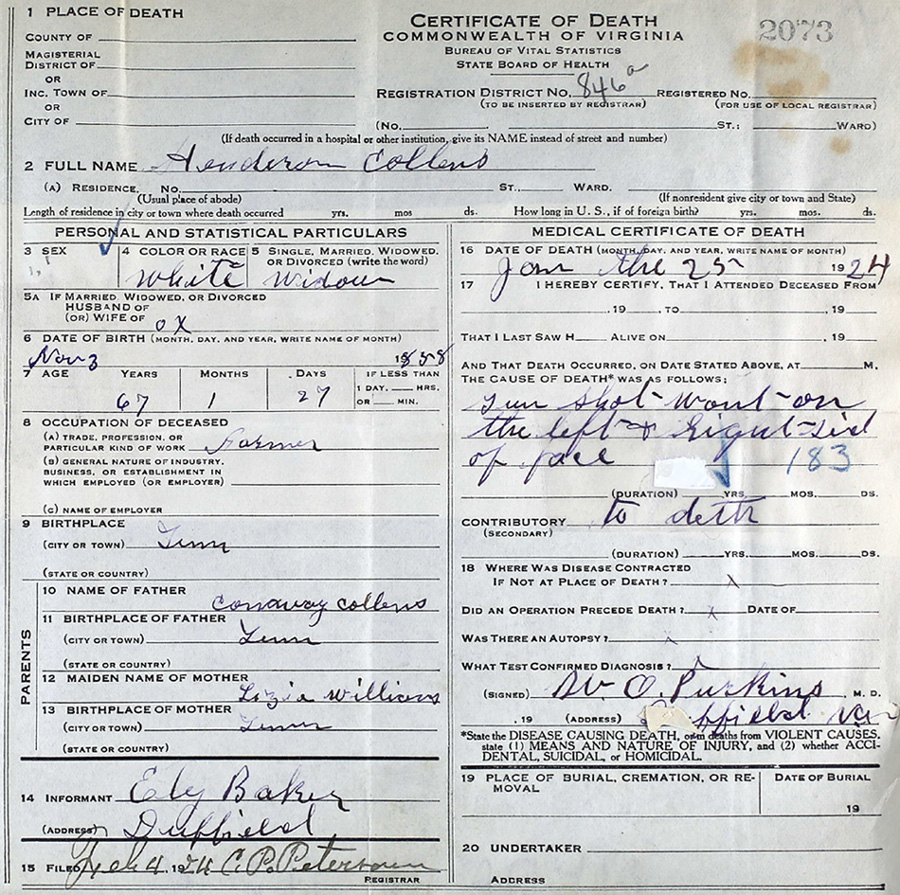 1 PLACE OF DEATH
COUNTY OF
MAGISTERIAL
DISTRICT OF
OR
INC. TOWN OF
OR
CITY OF
CERTIFICATE OF DEATH
COMMONWEALTH OF VIRGINIA
BUREAU OF VITAL STATISTICS
STATE BOARD OF HEALTH
2073
REGISTRATION DISTRICT NO. 846a REGISTERED NO.
(TO BE INSERTED BY REGISTRAR) (FOR USE OF LOCAL REGISTRAR)
(No. ST.; WARD)
(If death occurred in a hospital or other institution, give its NAME instead of street and number)
2 FULL NAME Henderson Collens
(A) RESIDENCE. No. ST., WARD.
(Usual place of abode) (If nonresident give city or town and State)
Length of residence in city or town where death occurred yrs. mos ds. How long in U. S., if of foreign birth? yrs. mos. ds.
PERSONAL AND STATISTICAL PARTICULARS
3 SEX 4 COLOR OR RACE 5 SINGLE, MARRIED, WIDOWED, OR DIVORCED (write the word)
White Widow
5A IF MARRIED, WIDOWED, OR DIVORCED
HUSBAND OF
(OR) WIFE OF OX
6 DATE OF BIRTH (MONTH, DAY, AND YEAR, WRITE NAME OF MONTH)
Nov 3 1858
7 AGE YEARS MONTHS DAYS IF LESS THAN
1 DAY, HRS.
OR MIN.
67 1 27
8 OCCUPATION OF DECEASED
(A) TRADE, PROFESSION, OR
PARTICULAR KIND OF WORK Farmer
(B) GENERAL NATURE OF INDUSTRY,
BUSINESS, OR ESTABLISHMENT IN
WHICH EMPLOYED (OR EMPLOYER)
(C) NAME OF EMPLOYER
9 BIRTHPLACE
(CITY OR TOWN) Tenn
(STATE OR COUNTRY)
PARENTS
10 NAME OF FATHER
Conaway Collens
11 BIRTHPLACE OF FATHER
(CITY OR TOWN) Tenn
(STATE OR COUNTRY)
12 MAIDEN NAME OF MOTHER
Lizia Williams
13 BIRTHPLACE OF MOTHER
(CITY OR TOWN) Tenn
(STATE OR COUNTRY)
14 INFORMANT Ely Baker
(ADDRESS) Duffield
15 FILED Feb 4, 1924 C. P. Peterson
REGISTRAR
MEDICAL CERTIFICATE OF DEATH
16 DATE OF DEATH (MONTH, DAY, AND YEAR, WRITE NAME OF MONTH)
Jan the 25 1924
17 I HEREBY CERTIFY, THAT I ATTENDED DECEASED FROM
, 19 , TO , 19
THAT I LAST SAW H ALIVE ON , 19
AND THAT DEATH OCCURRED, ON DATE STATED ABOVE, AT M.
THE CAUSE OF DEATH* WAS AS FOLLOWS:
Gun shot wont on
the left & Right Sid
of face 183
(DURATION) YRS. MOS. DS.
CONTRIBUTORY to deth
(SECONDARY)
(DURATION) YRS. MOS. DS.
18 WHERE WAS DISEASE CONTRACTED
IF NOT AT PLACE OF DEATH? X
DID AN OPERATION PRECEDE DEATH? X DATE OF
WAS THERE AN AUTOPSY? X
WHAT TEST CONFIRMED DIAGNOSIS? X
(SIGNED) O. Purkins M. D.
, 19 (ADDRESS) Duffield Va
*State the DISEASE CAUSING DEATH, or in deaths from VIOLENT CAUSES,
state (1) MEANS AND NATURE OF INJURY, and (2) whether ACCI-
DENTAL, SUICIDAL, or HOMICIDAL.
19 PLACE OF BURIAL, CREMATION, OR RE-
MOVAL
DATE OF BURIAL
19
20 UNDERTAKER
ADDRESS